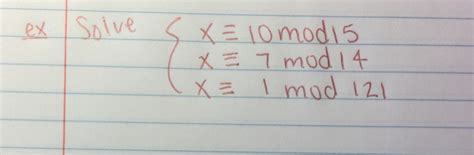 ex Solve { x ≡ 10 mod 15
x ≡ 7 mod 14
x ≡ 1 mod 121